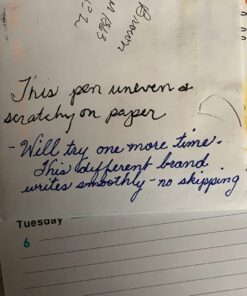 Brown
This pen uneven &
scratchy on paper
- Will try one more time.
This different brand
writes smoothly - no skipping
Tuesday
6